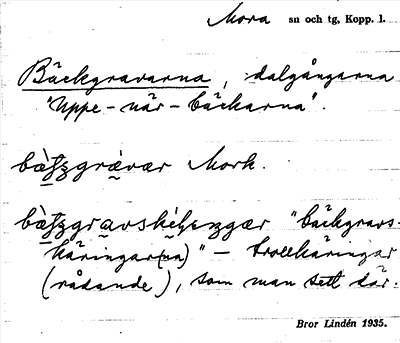 Mora sn och tg, Kopp. l.
Bäckgravarna, dalgångarna
"uppe-när-bäckarna".
grävär Mork.
"bäckgravs-
käringar(na)" – trollkäringar
(rådande), som man sett där.
Bror Lindén 1935.